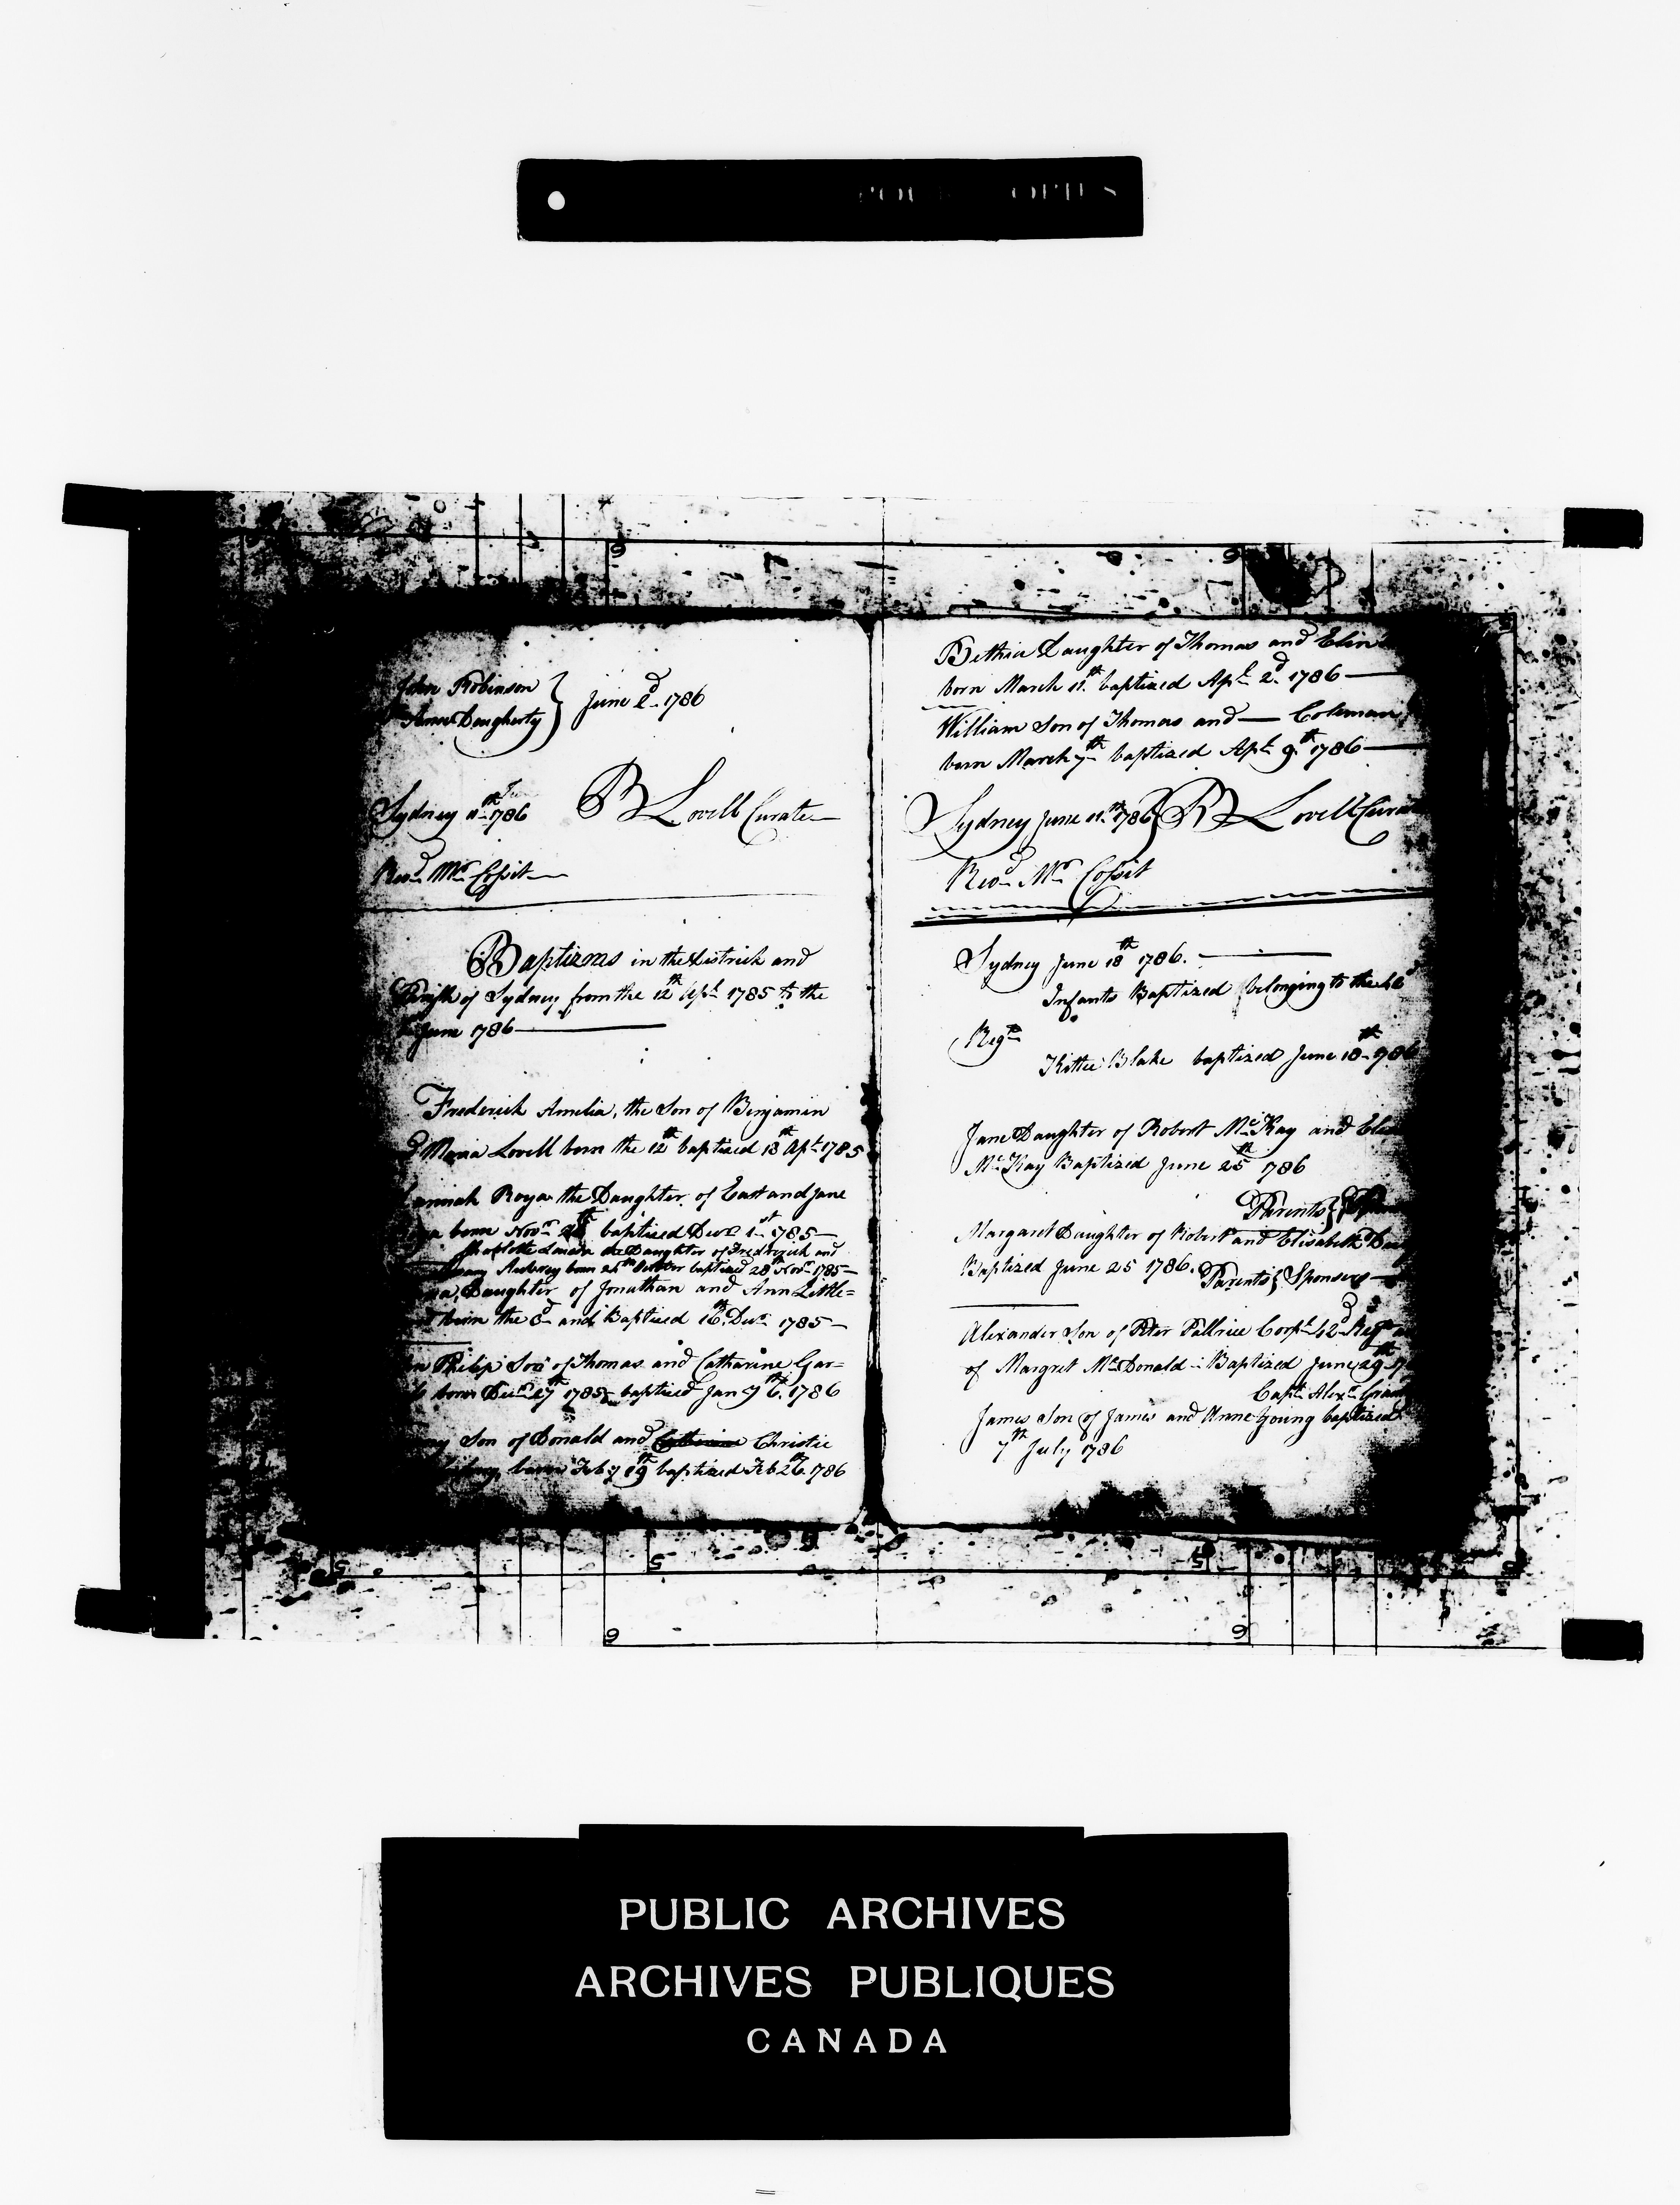 John Robinson
Anne Daugherty } June 2d 1786
Sydney 11th June 1786 B Lovell Curate
Revd Mr Cossit
Baptizms in the District and
Parish of Sydney from the 12th Apl 1785 to the
June 1786
Frederick Amelia, the Son of Benjamin
& Maria Lovell born the 12th baptized 18th Apl 1785
the Daughter of East and Jane
born Novr baptized Decr 1st 1785
the Daughter of Frederick and
born 25th October baptized 28th Novr 1785
Daughter of Jonathan and Ann Little=
born the 3d and Baptized 16th Decr 1785
Philip Son of Thomas and Catharine Gar=
born Decr 27th 1785 baptized Jany 6th 1786
Son of Donald and Catherine Christie
born Feby 19th baptized Feb 26th 1786
Bethia Daughter of Thomas and
born March 11th baptized Apl 2d 1786
William Son of Thomas and — Coleman
born March 7th baptized Apl 9th 1786
Sydney June 11th 1786 } B Lovell Curate
Revd Mr Cossit
Sydney June 18th 1786.
Infants Baptized belonging to the 42d
Regt
Kittie Blake baptized June 18th 1786
Jane Daughter of Robert McKay and
McKay Baptized June 25th 1786
Parents }
Margaret Daughter of Robert and Elisabeth
Baptized June 25 1786. Parents } Sponsers
Alexander Son of Peter Corpl 42d Regt
of Margret McDonald Baptized June 29th
Capt Alexr
James Son of James and Anne Young baptized
7th July 1786
PUBLIC ARCHIVES
ARCHIVES PUBLIQUES
CANADA